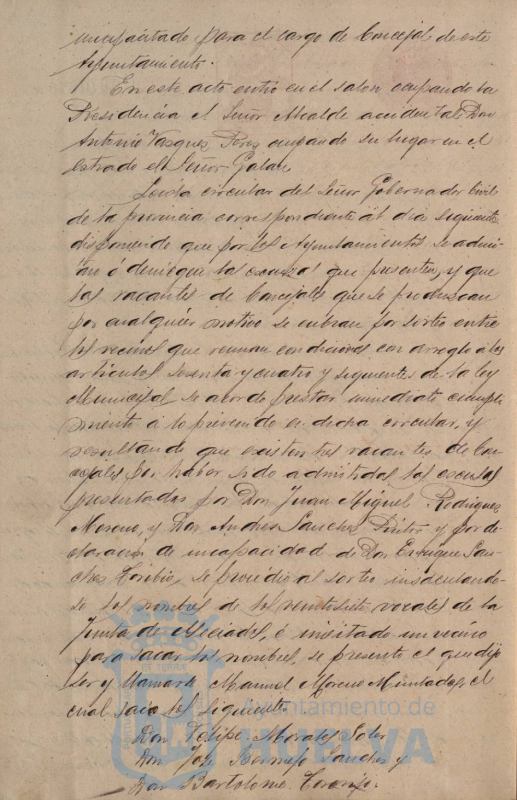 incapacitado para el cargo de Concejal de este
Ayuntamiento.
En este acto entró en el salon ocupando la
Presidencia el Señor Alcalde accidental Don
Antonio Vazquez Perez ocupando su lugar en el
estrado el Señor Galan
Leida circular del Señor Gobernador Civil
de la provincia correspondiente al dia siguiente
disponiendo que por los Ayuntamientos se admi-
tan ó denieguen las escusas que presenten, y que
las vacantes de Concejales que se produzcan
por cualquier motivo se cubran por sorteo entre
los vecinos que reunan condiciones con arreglo á los
articulos sesenta y cuatro y siguientes de la ley
Municipal se acordó prestar inmediato cumpli-
miento á lo prevenido en dicha circular, y
resultando que existen tres vacantes de Con-
cejales por haber sido admitidas las escusas
presentadas por Don Juan Miguel Rodriguez
Moreno, y Don Andres Sanchez Pintor y por de-
claracion de incapacidad de Don Enrique San-
chez Toribio, se procedió al sorteo insaculando-
se los nombres de los veintisiete vocales de la
Junta de Asociados, é invitado un vecino
para sacar los nombres, se presentó el que dijo
ser y llamarse Manuel Moreno el
cual sacó los siguientes
Don Felipe Morales Soler
Don José Bermejo Sanchez y
Don Bartolomé Toronjo.
Ayuntamiento de
HUELVA